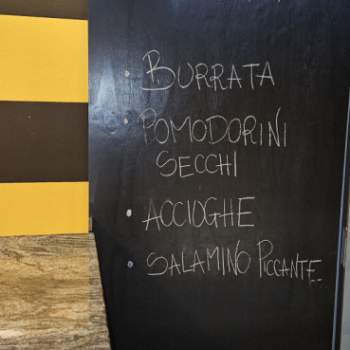 • BURRATA
• POMODORINI
SECCHI
• ACCIOGHE
• SALAMINO PICCANTE..